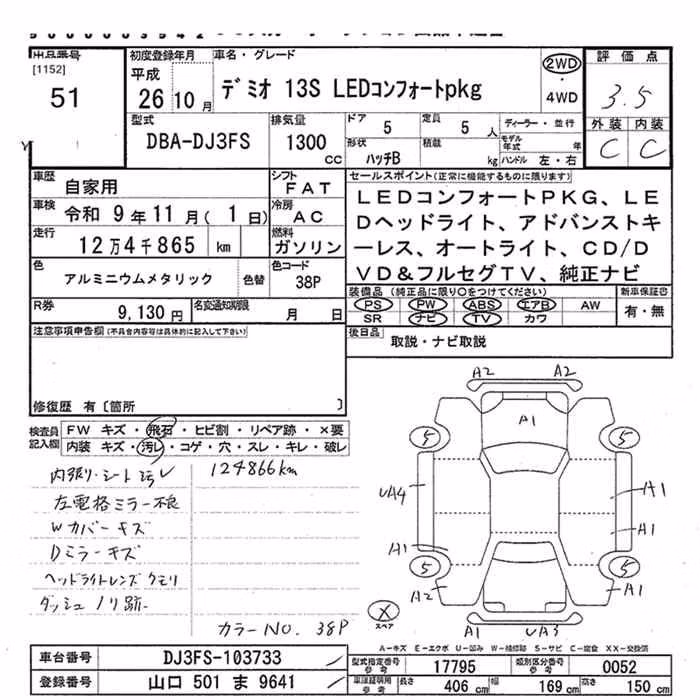 出品番号
[1152]
51
初度登録年月
平成
26 10 月
車名・グレード
デミオ 13S LEDコンフォートpkg
2WD
・
4WD
評価点
3.5
外装 内装
C C
型式
DBA-DJ3FS
排気量
1300
cc
ドア
5
定員
5 人
ディーラー・並行
形状
ハッチB
積載
kg
モデル年式 年
ハンドル 左・右
車歴
自家用
シフト
FAT
車検
令和 9年11月(1日)
冷房
AC
走行
12万4千865 km
燃料
ガソリン
色
アルミニウムメタリック
色替
色コード
38P
R券
9,130 円
名変通知期限
月 日
セールスポイント(正常に機能するものに限ります)
LEDコンフォートPKG、LE
Dヘッドライト、アドバンストキ
ーレス、オートライト、CD/D
VD&フルセグTV、純正ナビ
装備品(純正品に限り○をつけてください)
PS PW ABS エアB AW
SR ナビ TV カワ
新車保証書
有・無
後日品
取説・ナビ取説
注意事項申告欄(不具合内容等は具体的に記入して下さい)
修復歴 有〔箇所 〕
検査員
記入欄
FW キズ・飛石・ヒビ割・リペア跡・×要
内装 キズ・汚レ・コゲ・穴・スレ・キレ・破レ
内張り・シート汚レ
124866km
左電格ミラー不良
Wカバーキズ
Dミラーキズ
ヘッドライトレンズクモリ
ダッシュノリ跡
カラーNO. 38P
A2 A2
A1
5 5
UA4
A1
A1
A1
5 5
A2
A1
×
スペア
A1 UA3
A-キズ E-エクボ U-凹み W-補修跡 S-サビ C-腐食 XX-交換済
車台番号
DJ3FS-103733
登録番号
山口 501 ま 9641
型式指定番号
参考
17795
類別区分番号
参考
0052
車庫証明用
参考
長さ
406 cm
幅
169 cm
高さ
150 cm